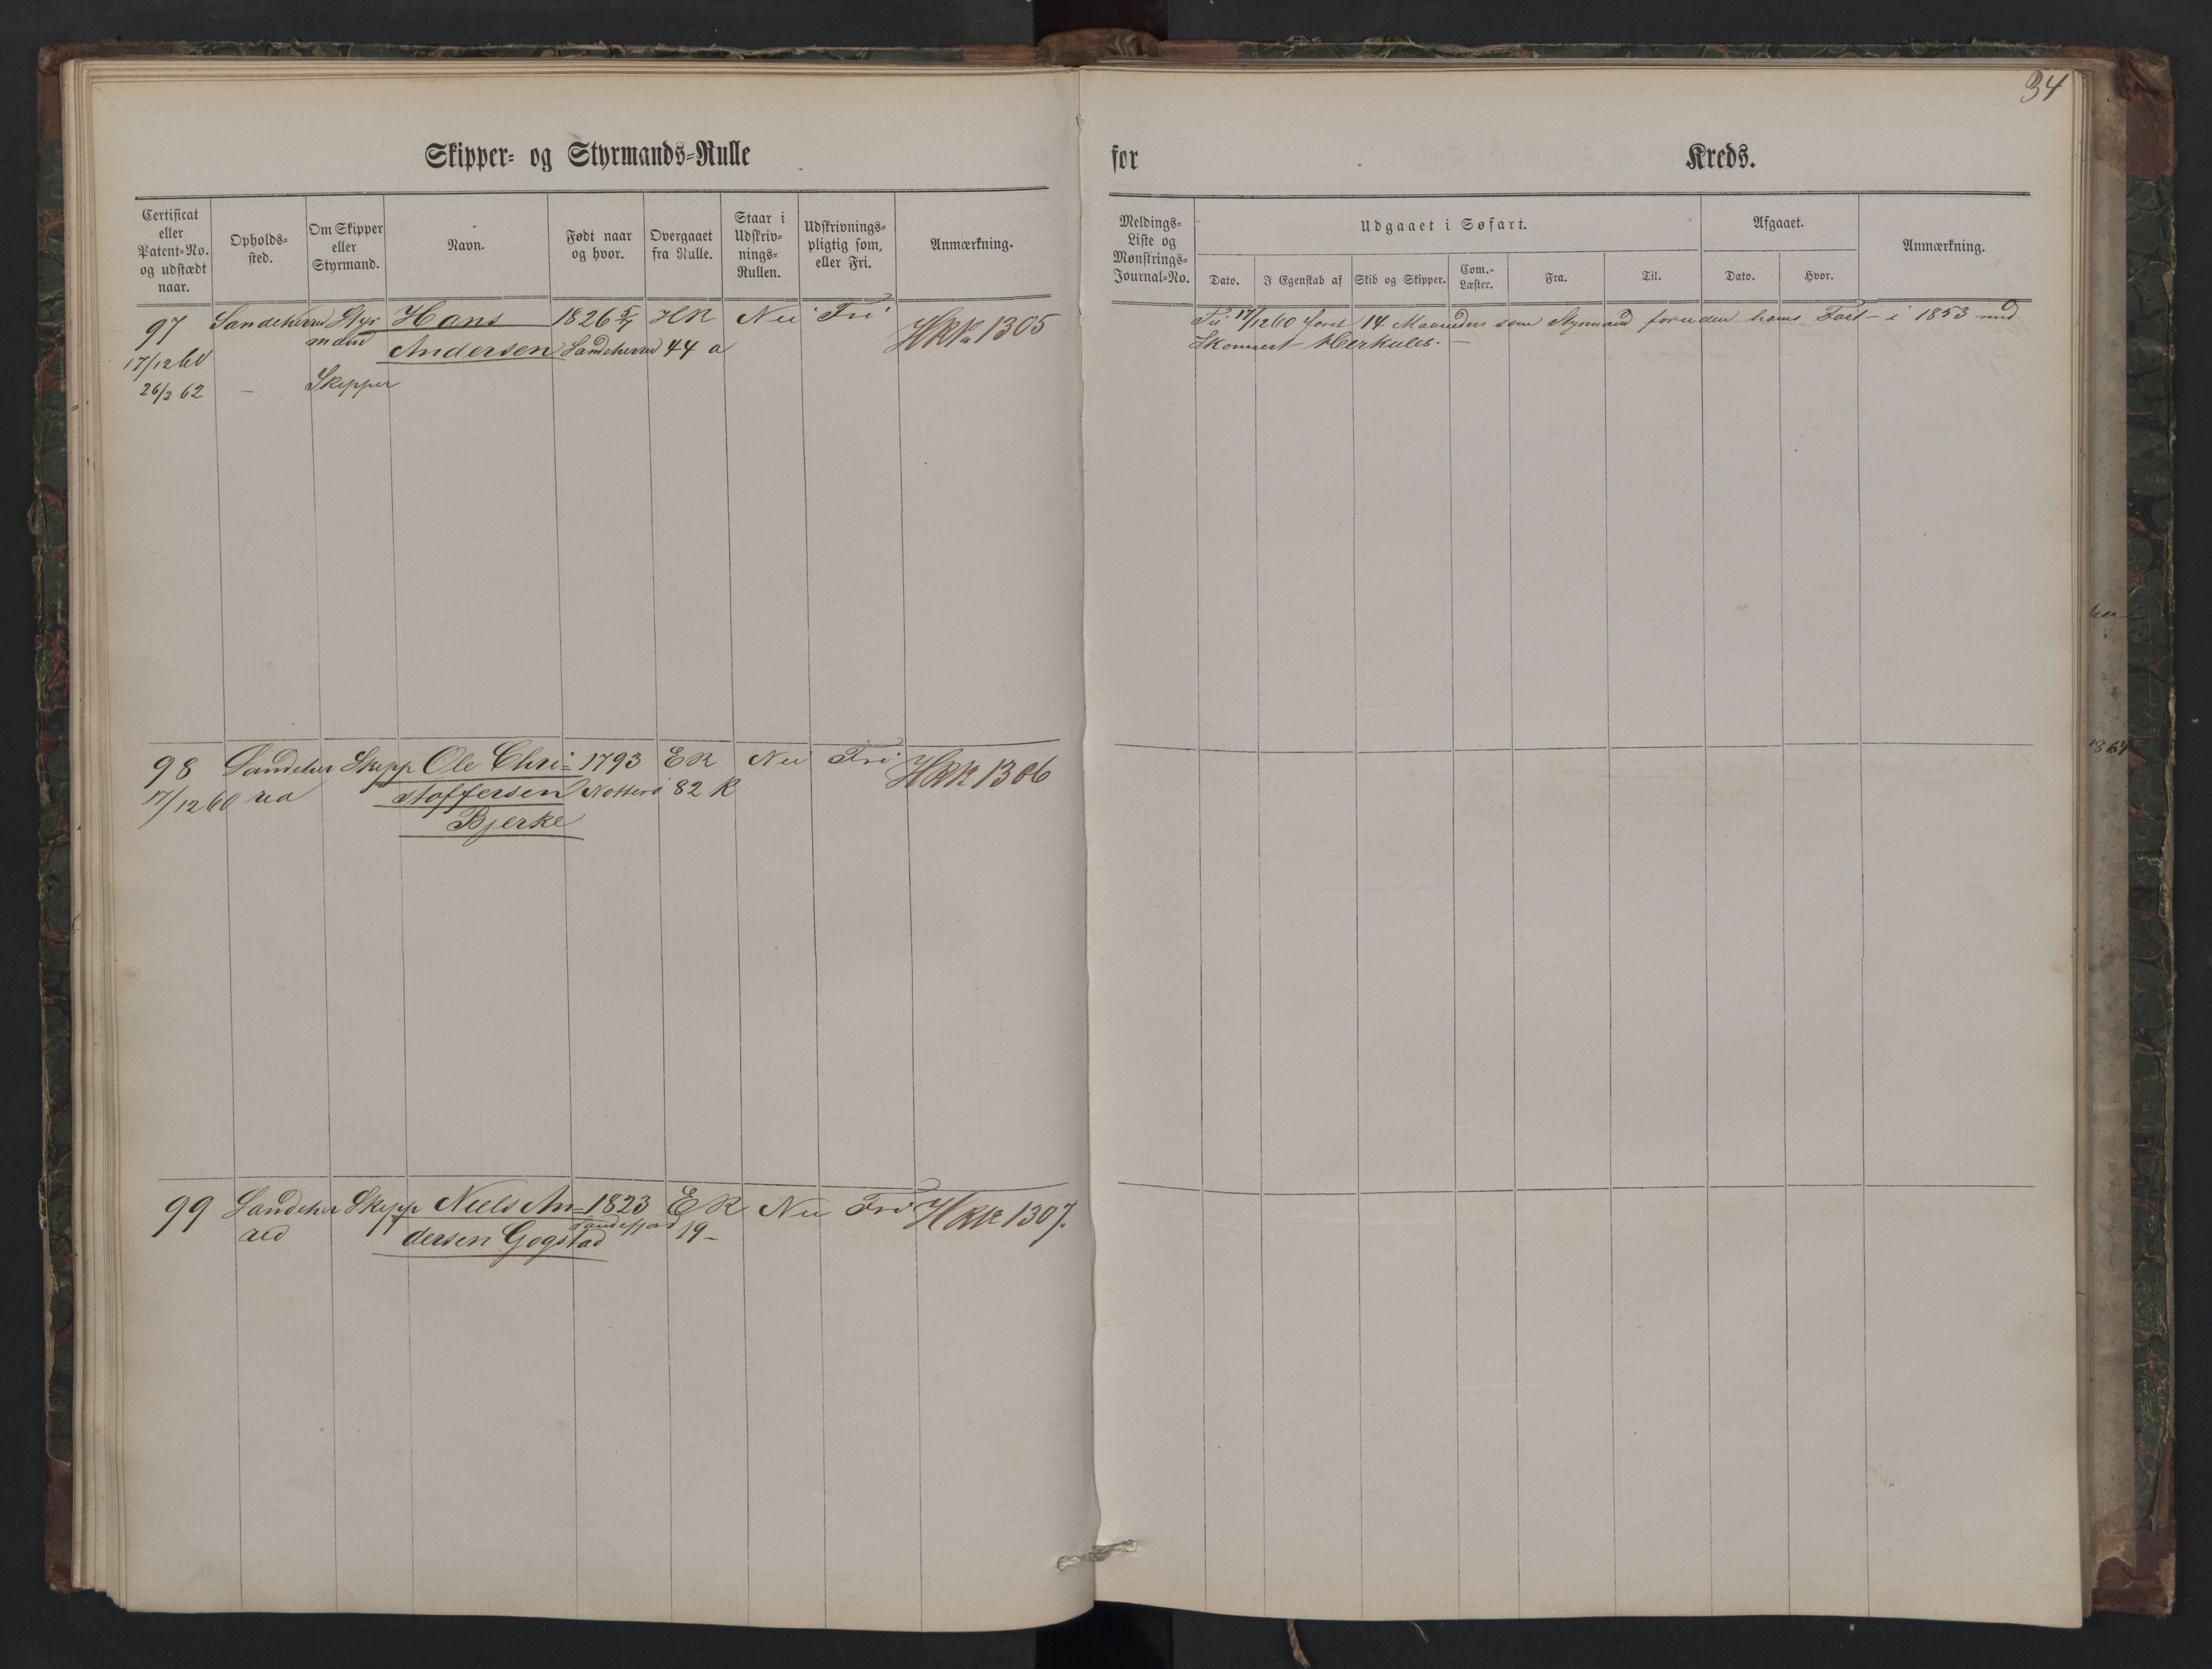 34
Skipper- og Styrmands-Rulle
for Kreds.
Certificat eller Patent-No. og udstædt naar.
Opholds-sted.
Om Skipper eller Styrmand.
Navn.
Født naar og hvor.
Overgaaet fra Rulle.
Staar i Udskriv-nings-Rullen.
Udskrivnings-pligtig som, eller Fri.
Anmærkning.
Meldings-Liste og Mønstrings-Journal-No.
Udgaaet i Søfart.
Afgaaet.
Anmærkning.
Dato.
I Egenskab af
Skib og Skipper.
Com.-Læster.
Fra.
Til.
Dato.
Hvor.
97 Sandeherred Styr Hans 1826 5/7 HR Nei Fri HRK 1305
mand Andersen Sandeherred 44 a
17/12 60
26/3 62 — Skipper
17/12 60 faret 14 Maaneder som Styrmand foruden hans Fart i 1853 med
Skonnert Herkules. —
98 Sandeher Skipp Ole Chri= 1793 ER Nei Fri HRK 1306
17/12 60 red stoffersen Notterø 82 R
Bjerke
99 Sandeher Skipp Niels An= 1823 ER Nei Fri HRK 1307.
red dersen Gogstad Sandefjord 19 -
1864